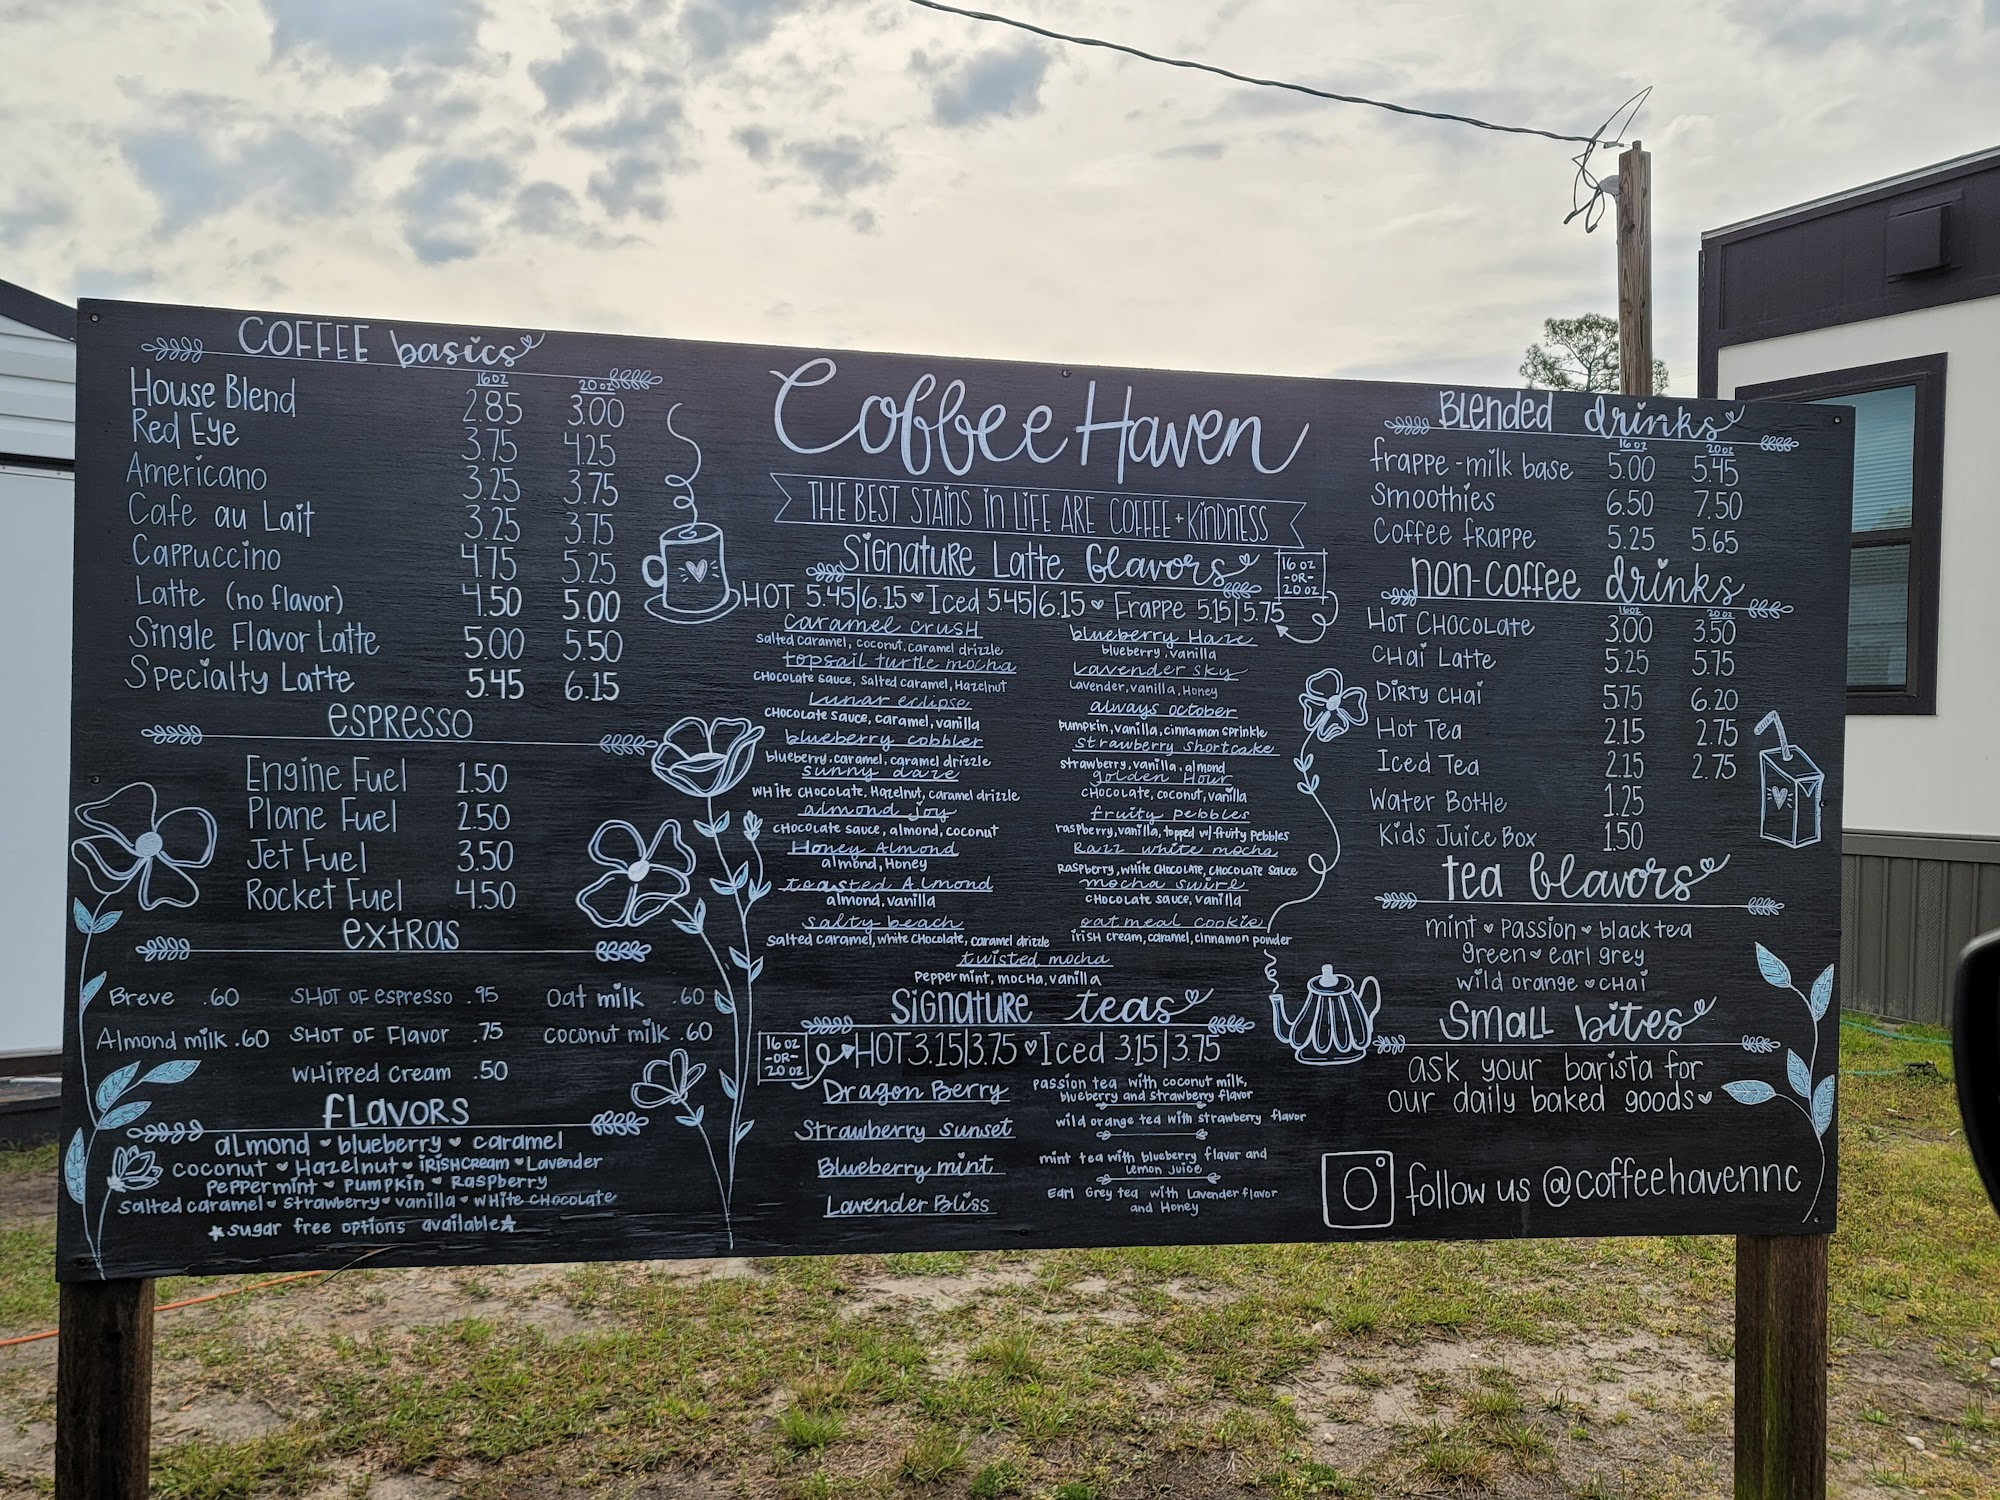 COFFEE basics
16oz 20oz
House Blend 2.85 3.00
Red Eye 3.75 4.25
Americano 3.25 3.75
Cafe au Lait 3.25 3.75
Cappuccino 4.75 5.25
Latte (no flavor) 4.50 5.00
Single Flavor Latte 5.00 5.50
Specialty Latte 5.45 6.15
espresso
Engine Fuel 1.50
Plane Fuel 2.50
Jet Fuel 3.50
Rocket Fuel 4.50
extras
Breve .60 SHOT OF espresso .95 Oat milk .60
Almond milk .60 SHOT OF Flavor .75 coconut milk .60
WHipped cream .50
FLAVORS
almond blueberry caramel
coconut Hazelnut iRiSHcReam Lavender
peppermint pumpkin Raspberry
salted caramel strawberry vanilla wHite cHocolate
*sugar free options available*
Coffee Haven
THE BEST STAiNS in LiFE ARE COFFEE + KiNDNESS
SiGNATURE LATTE flavors
16 oz
-OR-
20 oz
HOT 5.45|6.15 Iced 5.45|6.15 Frappe 5.15|5.75
caramel crusH
salted caramel, coconut, caramel drizzle
topsail turtle mocha
cHocolate sauce, salted caramel, Hazelnut
Lunar eclipse
cHocolate sauce, caramel, vanilla
blueberry cobbler
blueberry, caramel, caramel drizzle
sunny daze
wHite cHocolate, Hazelnut, caramel drizzle
almond joy
cHocolate sauce, almond, coconut
Honey Almond
almond, Honey
toasted Almond
almond, vanilla
salty beach
salted caramel, white cHocolate, caramel drizzle
blueberry Haze
blueberry, vanilla
Lavender sky
Lavender, vanilla, Honey
always october
pumpkin, vanilla, cinnamon sprinkle
strawberry shortcake
strawberry, vanilla, almond
golden Hour
cHocolate, coconut, vanilla
fruity pebbles
raspberry, vanilla, topped w/ fruity pebbles
Razz white mocha
Raspberry, wHite cHocolate, cHocolate sauce
mocha swirl
cHocolate sauce, vanilla
oatmeal cookie
irisH cream, caramel, cinnamon powder
twisted mocha
peppermint, mocHa, vanilla
SiGNATURE teas
16 oz
-OR-
20 oz
HOT 3.15|3.75 Iced 3.15|3.75
Dragon Berry passion tea with coconut milk,
blueberry and strawberry flavor
Strawberry sunset wild orange tea with strawberry flavor
Blueberry mint mint tea with blueberry flavor and
Lemon juice
Lavender Bliss Earl Grey tea with Lavender flavor
and Honey
BLended drinks
16 oz 20oz
frappe - milk base 5.00 5.45
Smoothies 6.50 7.50
Coffee frappe 5.25 5.65
non-coffee drinks
16oz 20oz
HoT CHOCOLate 3.00 3.50
CHai Latte 5.25 5.75
DiRTy CHai 5.75 6.20
Hot Tea 2.15 2.75
Iced Tea 2.15 2.75
Water Bottle 1.25
Kids Juice Box 1.50
tea flavors
mint passion black tea
green earl grey
wild orange cHai
Small bites
ask your barista for
our daily baked goods
follow us @coffeehavennc